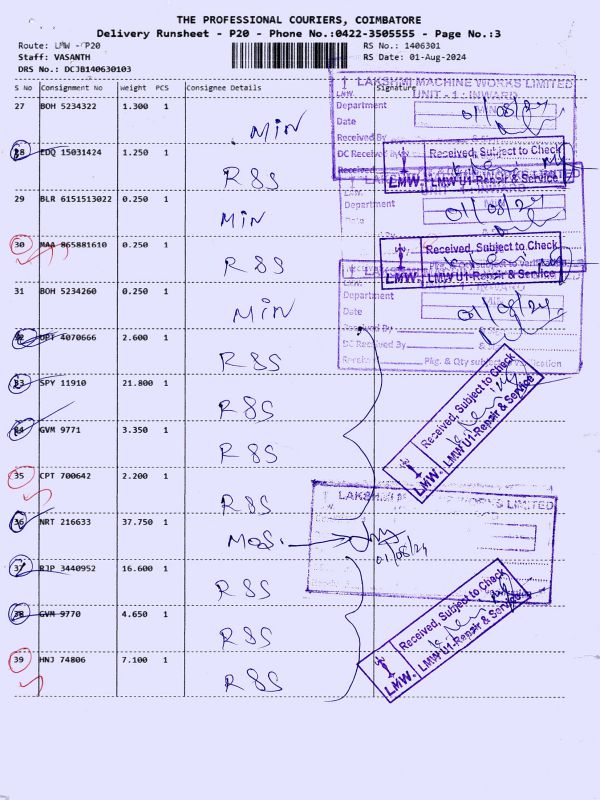 THE PROFESSIONAL COURIERS, COIMBATORE
Delivery Runsheet - P20 - Phone No.:0422-3505555 - Page No.:3
Route: LMW - P20
RS No.: 1406301
Staff: VASANTH
RS Date: 01-Aug-2024
DRS No.: DCJB140630103
S No Consignment No Weight PCS Consignee Details Signature
27 BOH 5234322 1.300 1 MIN
28 EDQ 15031424 1.250 1 R&S
29 BLR 6151513022 0.250 1 MIN
30 MAA 865881610 0.250 1 R&S
31 BOH 5234260 0.250 1 MIN
32 4070666 2.600 1 R&S
33 SPY 11910 21.800 1 R&S
34 GVM 9771 3.350 1 R&S
35 CPT 700642 2.200 1 R&S
36 NRT 216633 37.750 1
37 RJP 3440952 16.600 1 R&S
38 GVM 9770 4.650 1 R&S
39 HNJ 74806 7.100 1 R&S
LAKSHMI MACHINE WORKS LIMITED
UNIT - 1 : INWARD
LMW
Department
Date 01/08/24
Received By
DC Received by
Received, Subject to Check
LMW. LMW U1-Repair & Service
Department
Date 01/08/24
Received, Subject to Check
LMW. LMW U1-Repair & Service
LMW
Department
Date 01/08/24
Received By
DC Received By
Pkg. & Qty subject to verification
Received, Subject to Check
LMW. LMW U1-Repair & Service
LAKSHMI MACHINE WORKS LIMITED
01/08/24
Received, Subject to Check
LMW. LMW U1-Repair & Service